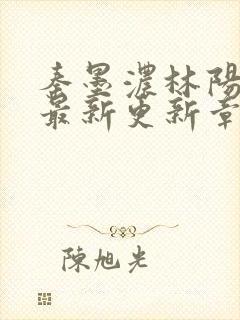 秦墨濃林陽
最新更新章
陳旭光